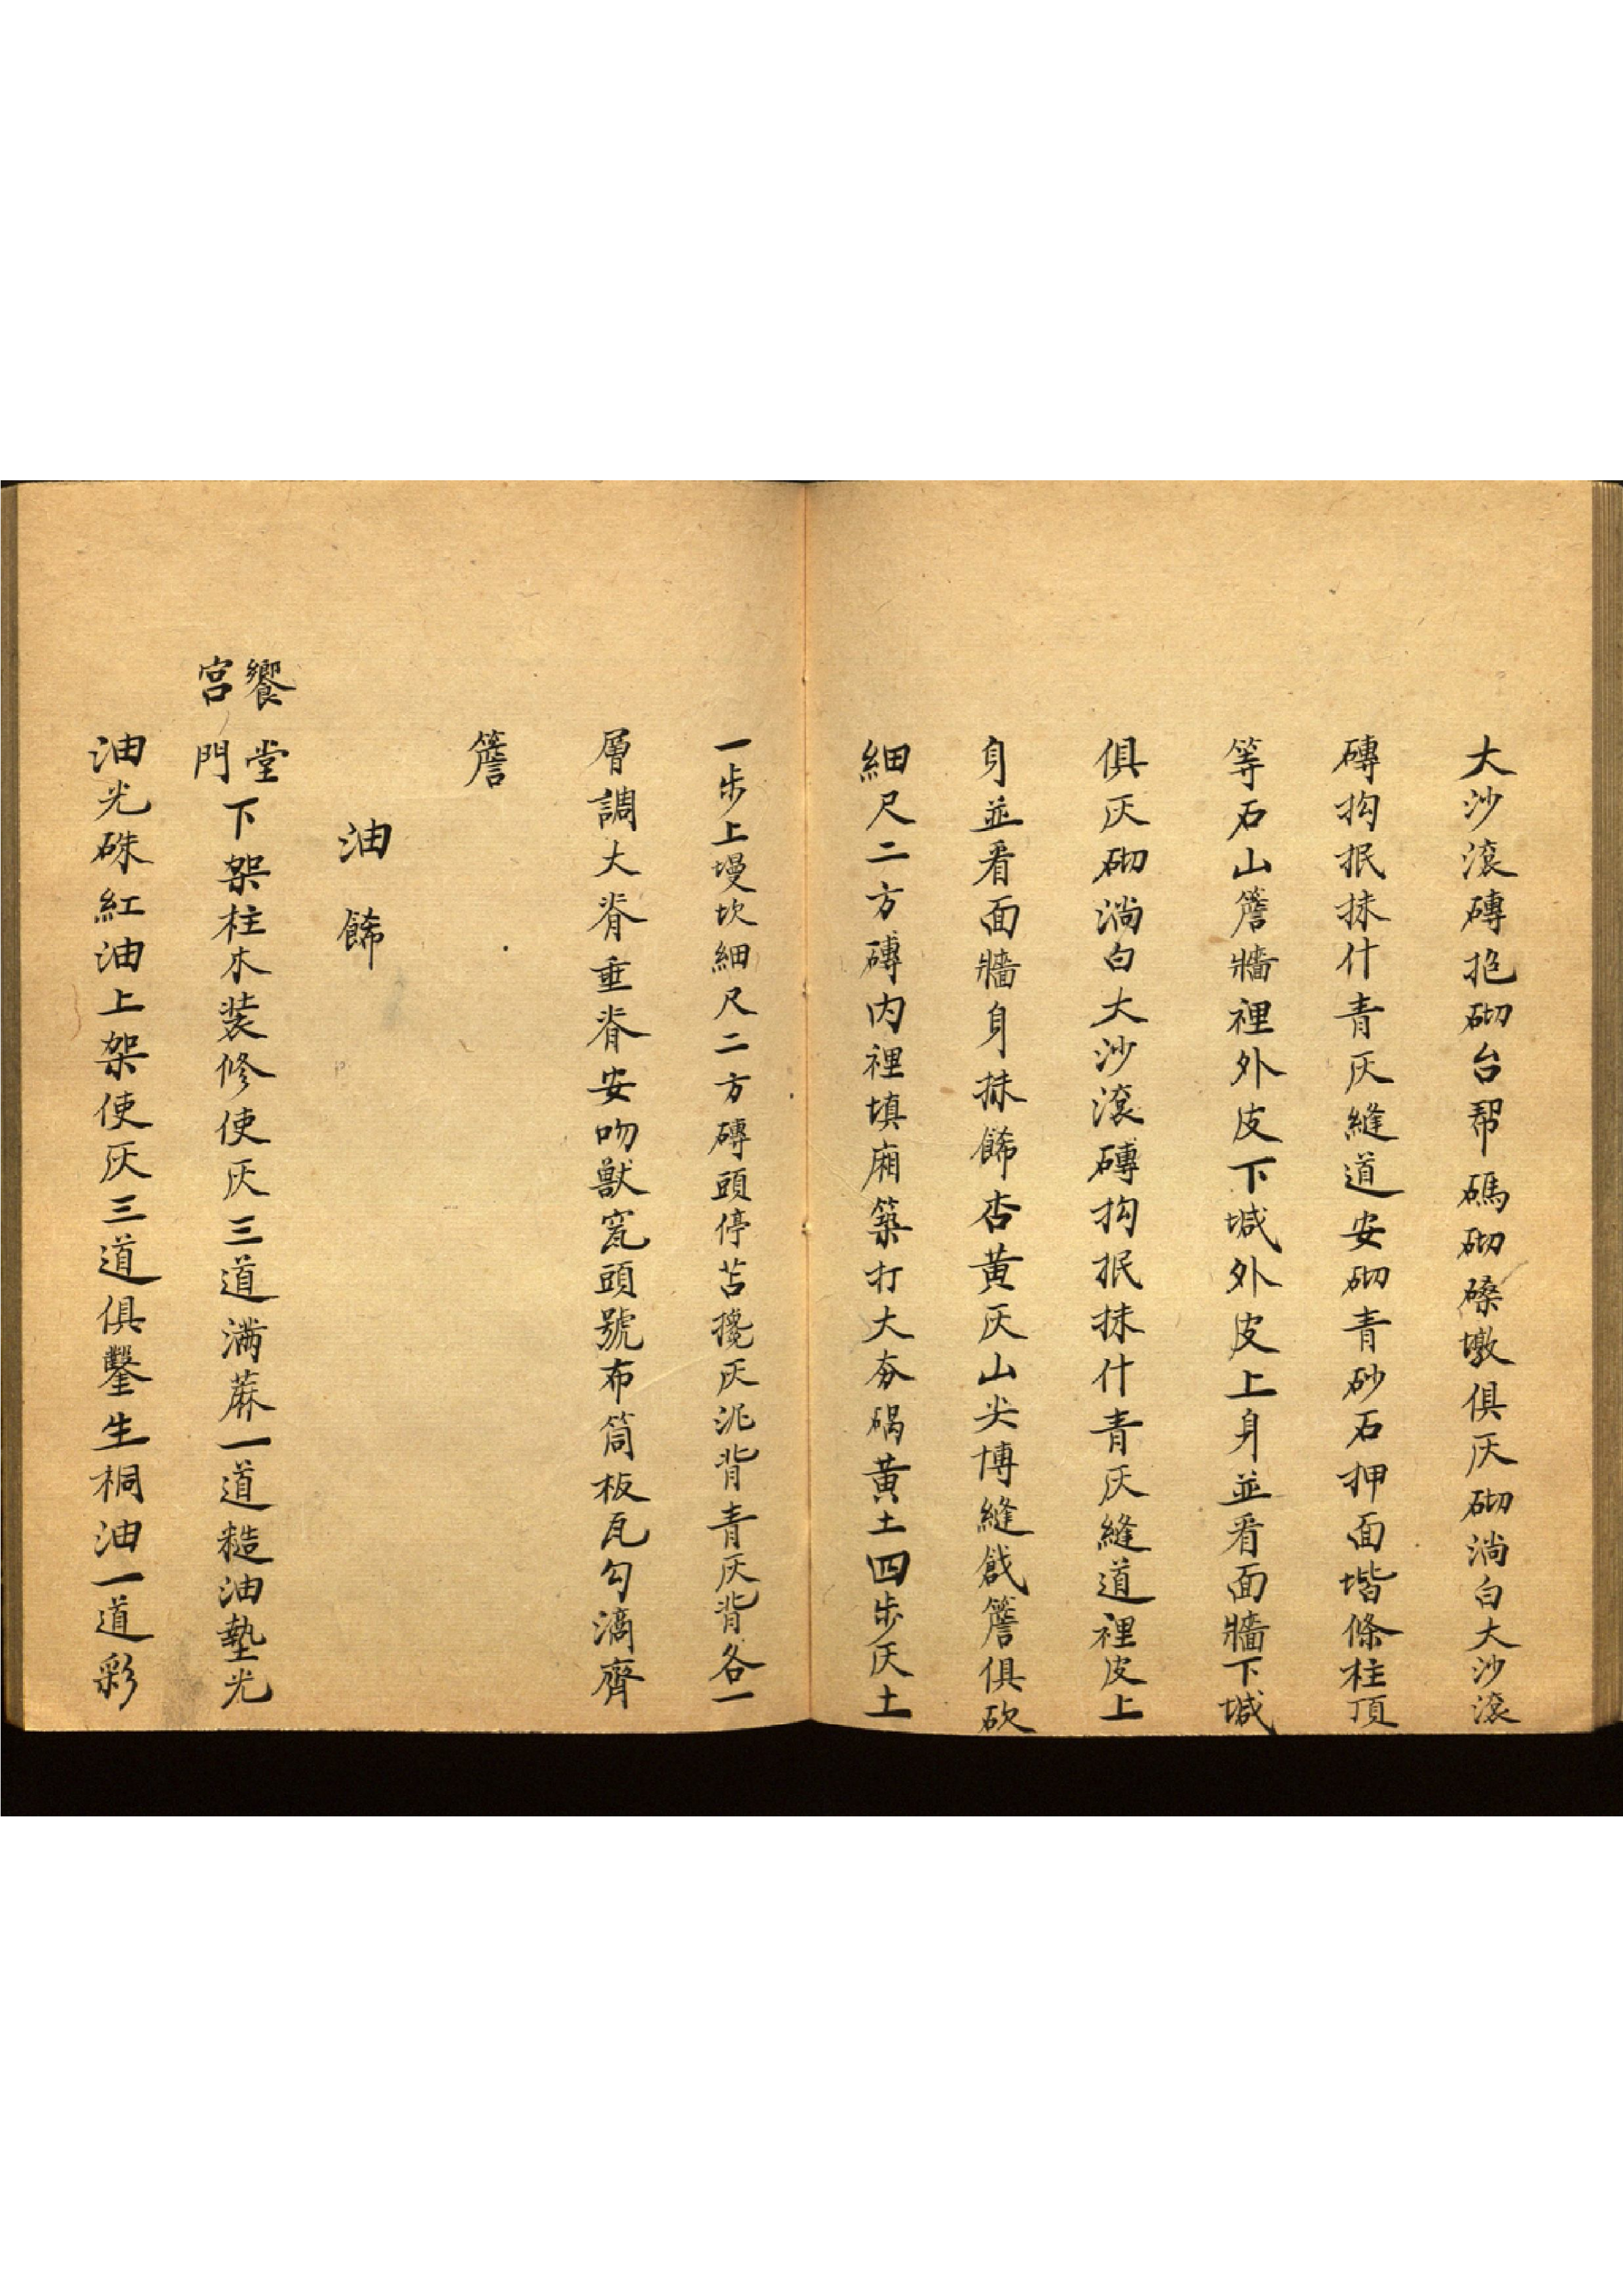 大沙滾磚掐砌台帮碼砌磉墩俱灰砌淌白大沙滾
磚抅抿抹什青灰縫道安砌青砂石押面堦條柱頂
等石山簷牆裡外皮下堿外皮上身並看面牆下堿
俱灰砌淌白大沙滾磚抅抿抹什青灰縫道裡皮上
身並看面牆身抹餙杏黄灰山尖博縫戧簷俱砍
細尺二方磚内裡填廂築打大夯碢黄土四步灰土
一步上墁坎細尺二方磚頭停苫攙灰泥背青灰背各一
層調大脊垂脊安吻獸瓦頭號布筒板瓦勾滴齊
簷
油餙
饗堂
宮門下架柱木装修使灰三道满蔴一道糙油墊光
油光硃紅油上架使灰三道俱鑿生桐油一道彩